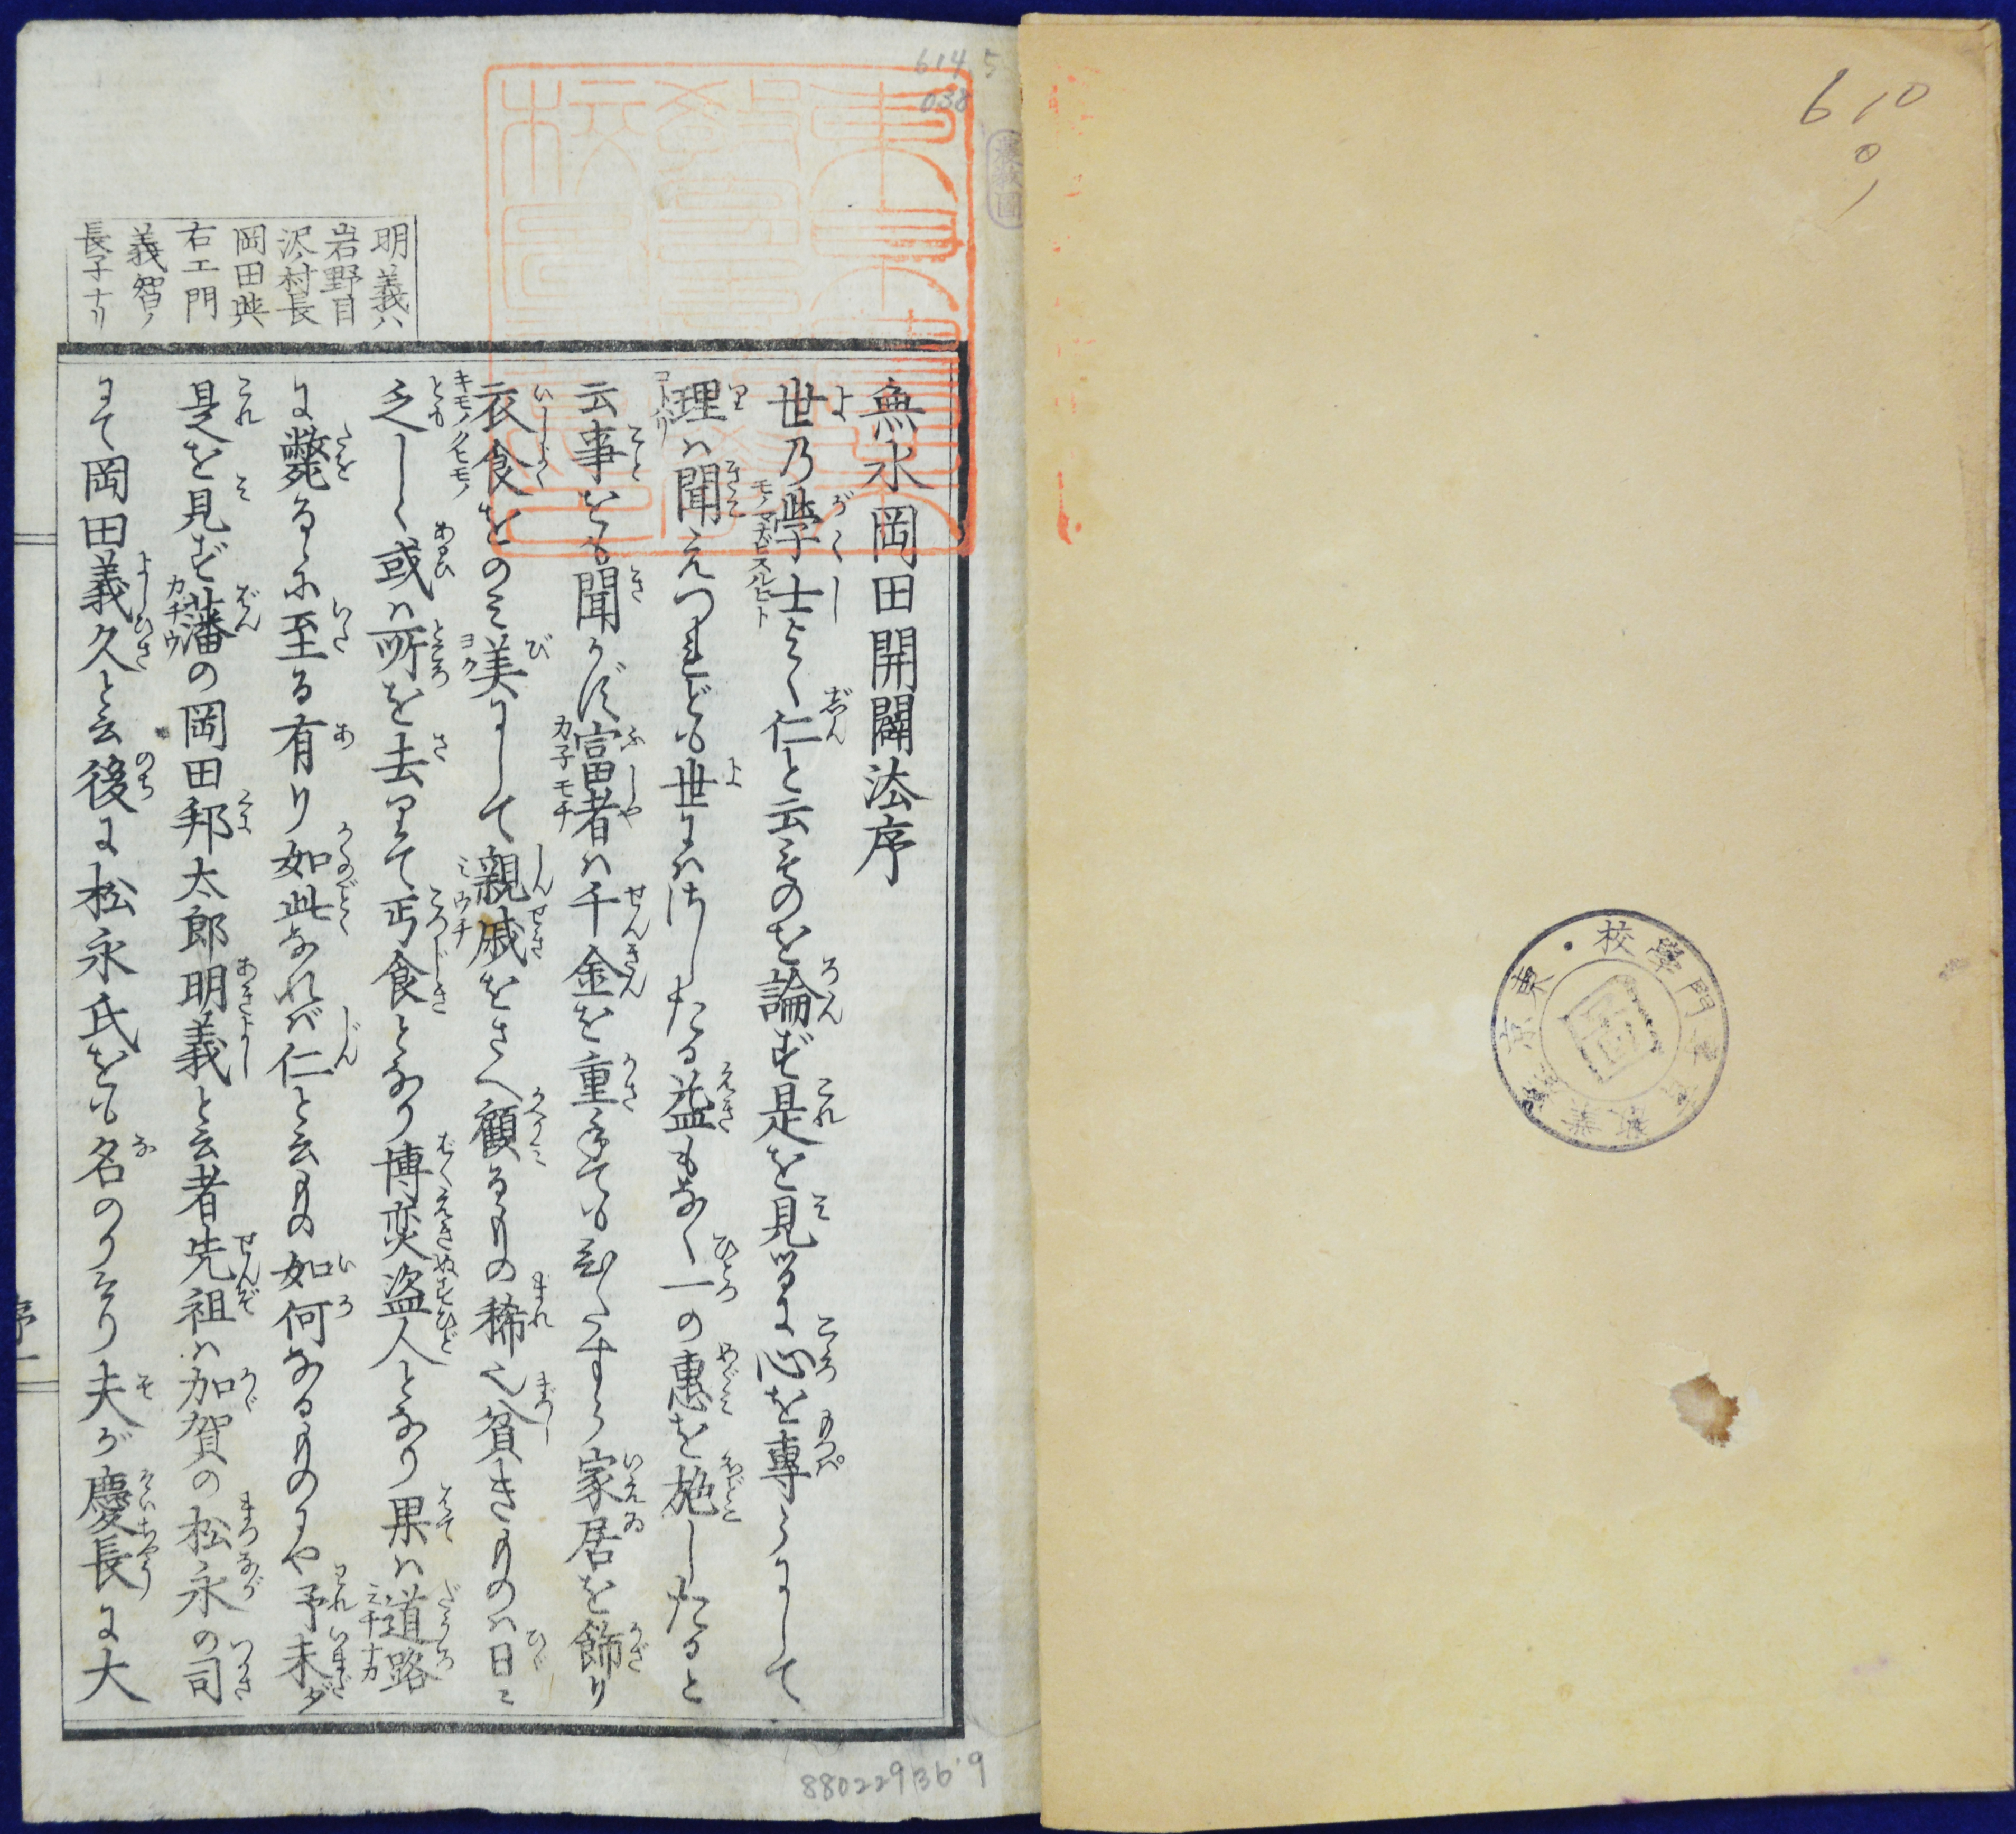 610
01
614.5
038
無水岡田開闢法序
世乃學士よく仁と云ものを論ず是を見るに心を專らにして
理ハ聞えつれども世にハほしたる益もなく一の惠を施したると
云事をも聞かず富者ハ千金を重ねてもひたすら家居を飾り
衣食をのミ美にして親戚をさへ顧るもの稀也貧きものハ日ミ
乏しく或ハ所を去りて丐食となり博奕盗人となり果ハ道路
に斃るゝに至る有り如此なれバ仁と云もの如何なるものにや予未ダ
是を見ず藩の岡田邦太郎明義と云者先祖ハ加賀の松永の司
にて岡田義久と云後に松永氏をも名のりたり夫が慶長に大
明義ハ
岩野目
沢村長
岡田與
右エ門
義智ノ
長子ナリ
序一
880229136'9